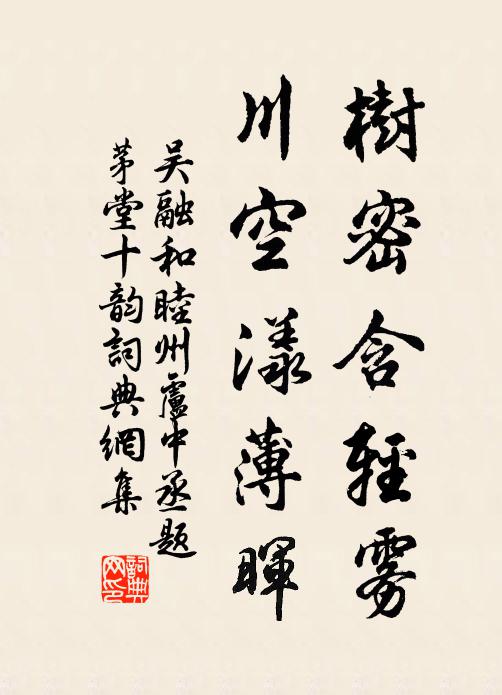 樹密含輕霧
川空漾薄暉
吴融和睦州盧中丞題
茅堂十韵詞典網集
詞典網印